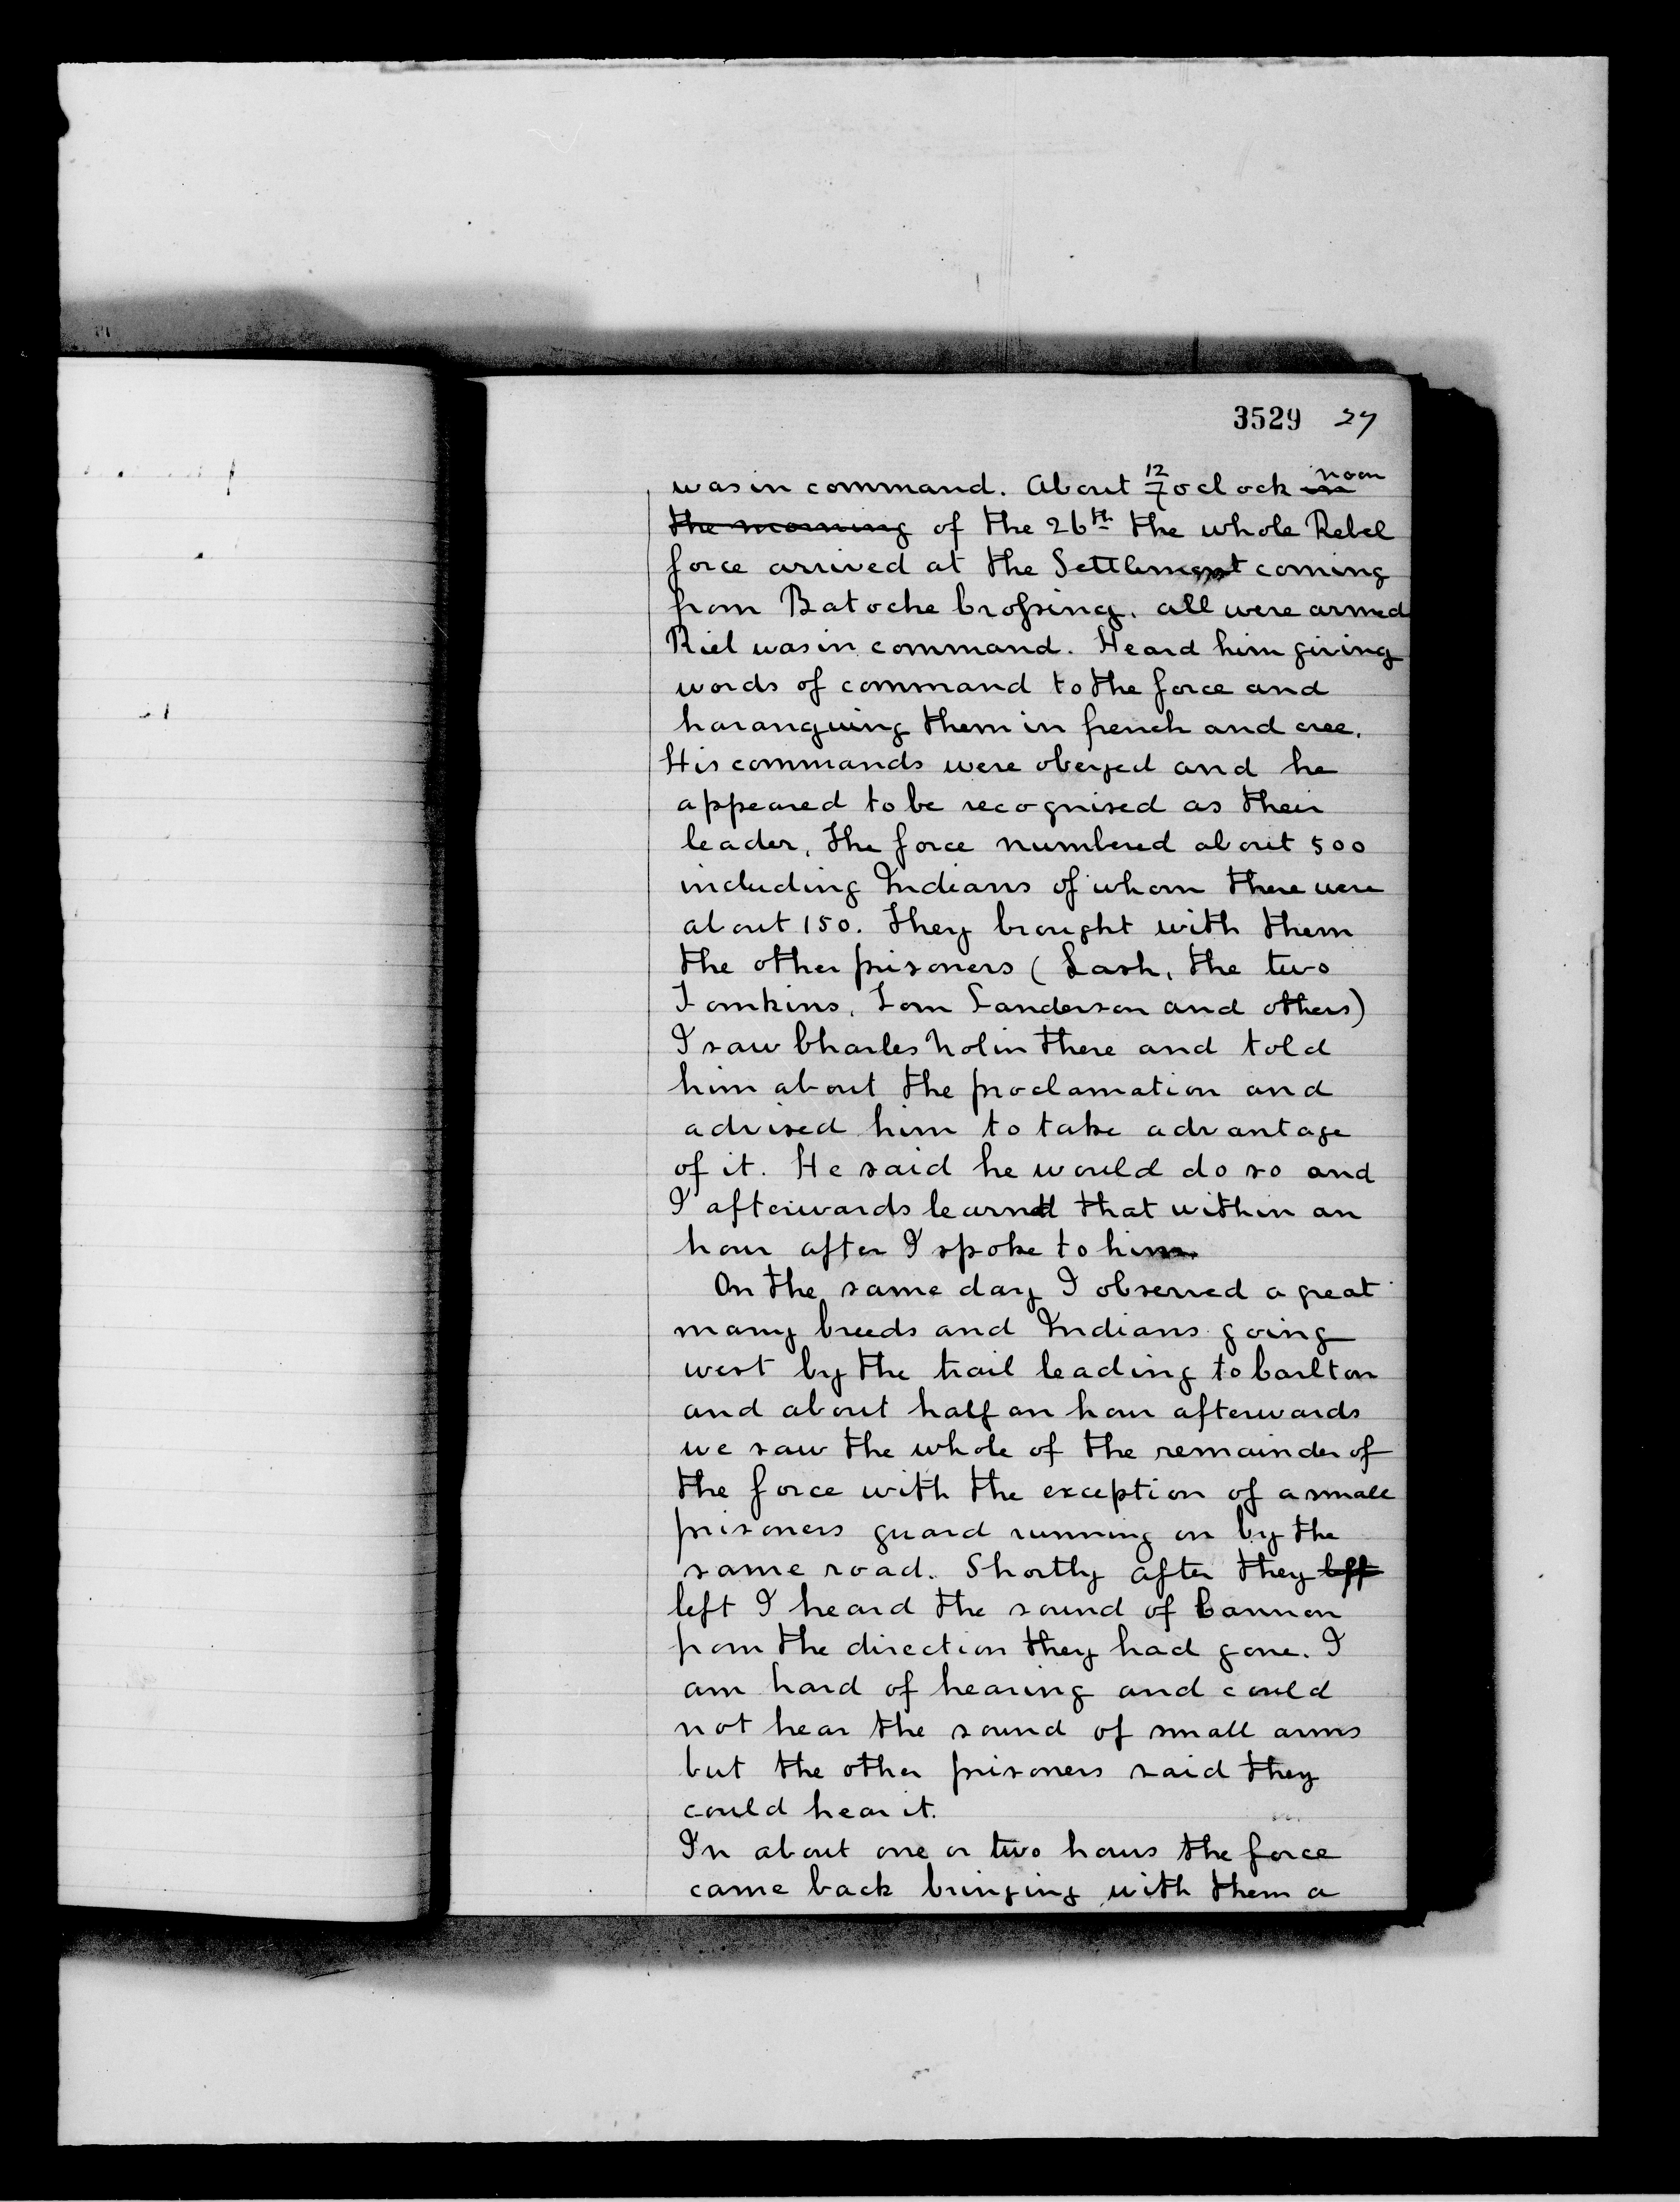 3529 27
was in command. About 12 7 oclock in noon
the morning of the 26th the whole Rebel
force arrived at the Settlement coming
from Batoche Crossing. all were armed
Riel was in command. Heard him giving
words of command to the force and
haranguing them in french and cree.
His commands were obeyed and he
appeared to be recognised as their
leader, the force numbered about 500
including Indians of whom there were
about 150. They brought with them
the other prisoners (Lash, the two
Tomkins, Tom Sanderson and others)
I saw Charles Nolin there and told
him about the proclamation and
advised him to take advantage
of it. He said he would do so and
I afterwards learned that within an
hour after I spoke to him.
On the same day I observed a great
many breeds and Indians going
west by the trail leading to Carlton
and about half an hour afterwards
we saw the whole of the remainder of
the force with the exception of a small
prisoners guard running on by the
same road. Shortly after they left
left I heard the sound of Cannon
from the direction they had gone. I
am hard of hearing and could
not hear the sound of small arms
but the other prisoners said they
could hear it.
In about one or two hours the force
came back bringing with them a